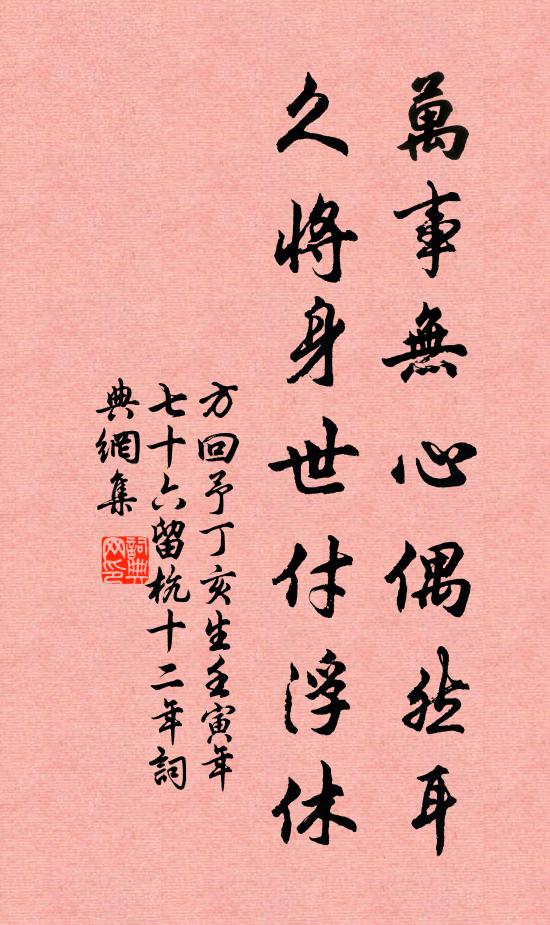 萬事無心偶然耳
久將身世付浮休
方回予丁亥生壬寅年
七十六留杭十二年詞
典網集
詞典網印